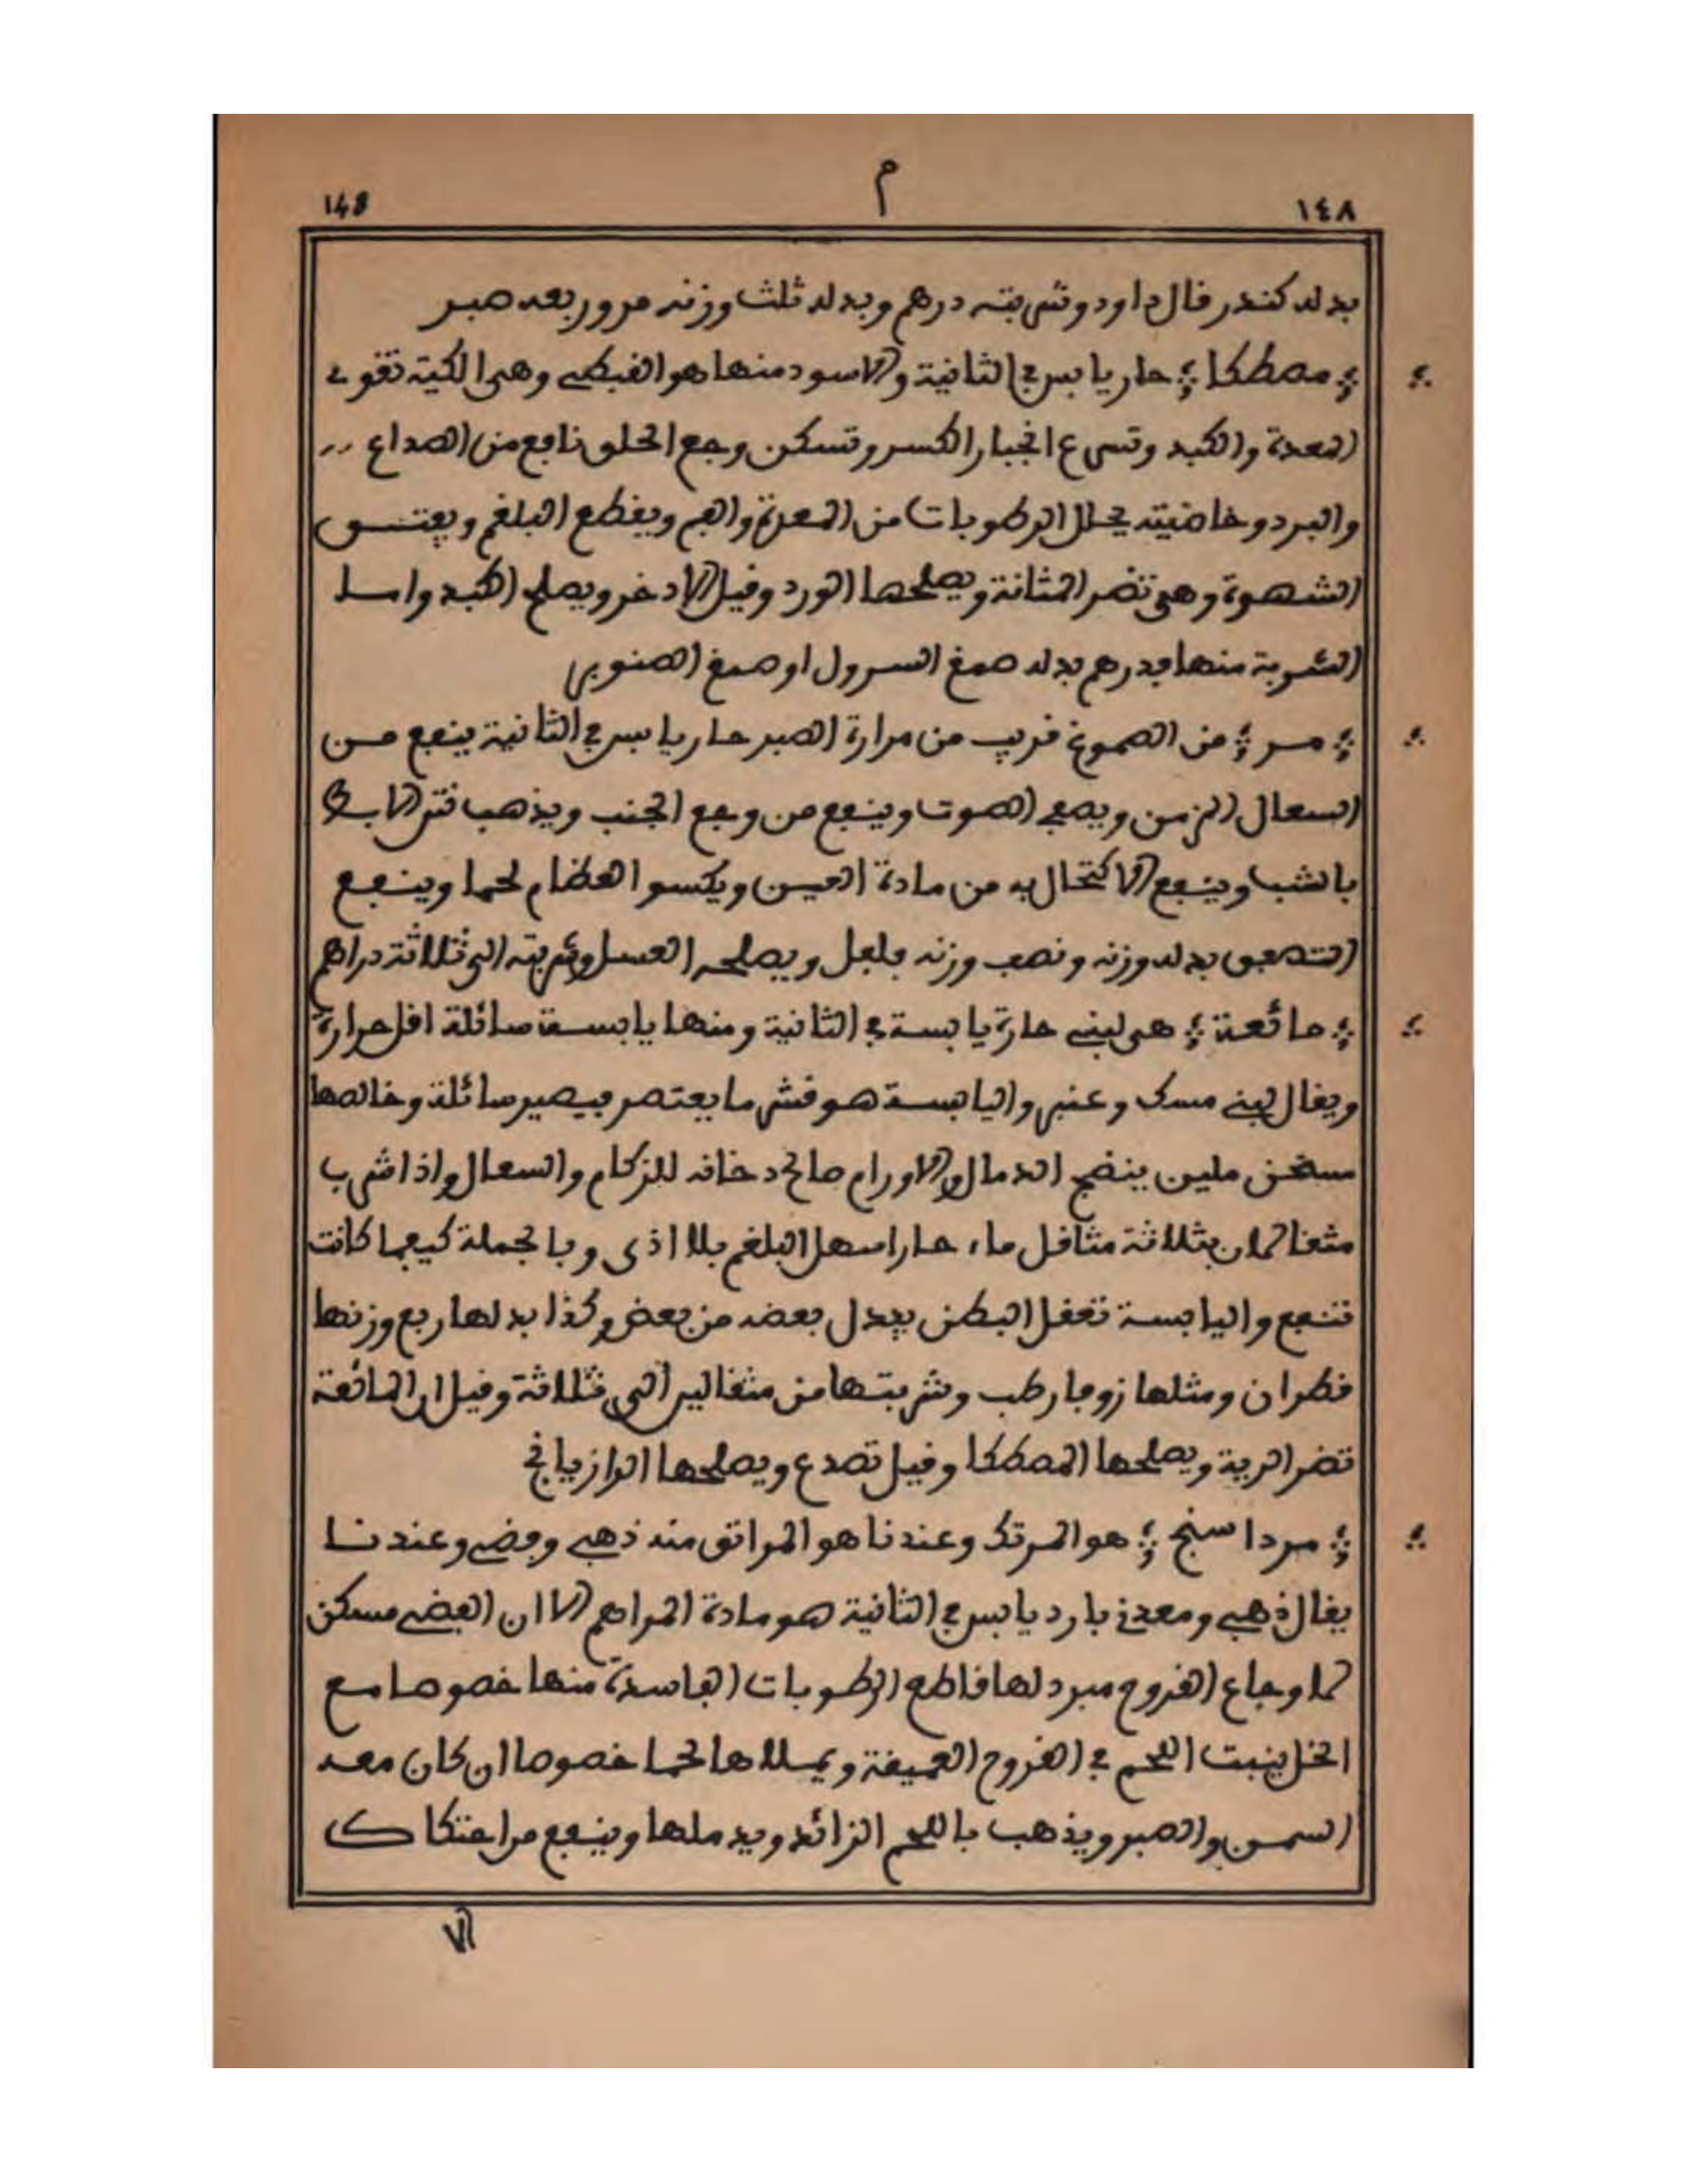 ١٤٨ م 148
بدله كندر قال داود وشربته درهم وبدله ثلث وزنه مر وربعه صبر
؞ مصطكا ؞ حار يابس في الثانية والاسود منها هو القبطي وهي الكية تقوي
المعدة والكبد وتسرع انجبار الكسر وتسكن وجع الحلق نافع من الصداع
والبرد وخاصيته يحلل الرطوبات من المعدة والفم ويقطع البلغم ويفتق
الشهوة وهي تضر المثانة ويصلحها الورد وقيل الاذخر ويصلح الكبد واما
الشربة منها فدرهم بدله صمغ السرول او صمغ الصنوبر
؞ مر ؞ من الصموغ قريب من مرارة الصبر حار يابس في الثانية ينفع من
السعال المزمن ويصفي الصوت وينفع من وجع الجنب ويذهب نتن الابط
بالشب وينفع الاكتحال به من مادة العين ويكسوا العظام لحما وينفع
التعفن بدله وزنه ونصف وزنه فلفل ويصلحه العسل وشربته الى ثلاثة دراهم
؞ مائعة ؞ هي لبنى حارة يابسة في الثانية ومنها يابسة سائلة اقل حرارة
ويقال لبنى مسك وعنبر واليابسة هو قشر ما يعتصر فيصير سائلة وخالصها
مسخن ملين ينضج الدمال والاورام صالح دخانه للزكام والسعال واذا شرب
مثقالان بثلاثة مثاقل ماء حارا سهل البلغم بلا اذى وبالجملة كيفما كانت
تنفع واليابسة تعقل البطن يبدل بعضه من بعض وكذا بدلها ربع وزنها
قطران ومثلها زوفا رطب وشربتها من مثقالين الى ثلاثة وقيل ان المائعة
تضر الرية ويصلحها المصطكا وقيل تصدع ويصلحها الرازيانج
؞ مرداسنج ؞ هو المرتك وعندنا هو المراتق منه ذهبي وفضي وعندنا
يقال ذهبي ومعدني بارد يابس في الثانية هو مادة المراهم الا ان الفضي مسكن
لاوجاع القروح مبرد لها قاطع الرطوبات الفاسدة منها خصوصا مع
الخل ينبت اللحم في القروح العميقة ويملاها لحما خصوصا ان كان معه
السمن والصبر ويذهب باللحم الزائد ويدملها وينفع من احتكاك
الا